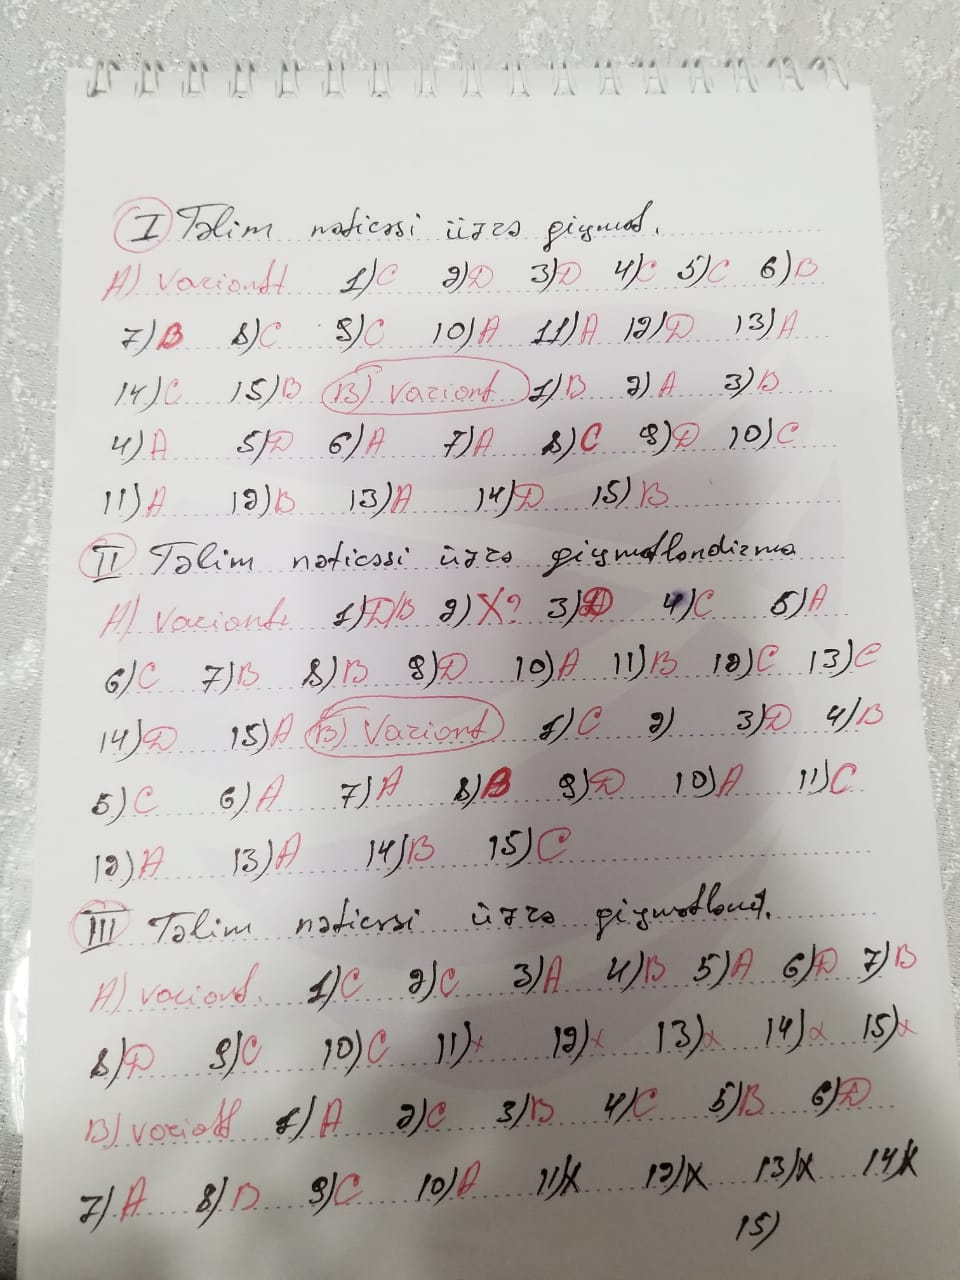 I Təlim nəticəsi üzrə qiymət.
A) Variant 1)C 2)D 3)D 4)C 5)C 6)B
7)B 8)C 9)C 10)A 11)A 12)D 13)A
14)C 15)B B) Variant 1)B 2)A 3)B
4)A 5)D 6)A 7)A 8)C 9)D 10)C
11)A 12)B 13)A 14)D 15)B
II Təlim nəticəsi üzrə qiymətləndirmə
A) Variant 1)D/B 2)X? 3)D 4)C 5)A
6)C 7)B 8)B 9)D 10)A 11)B 12)C 13)C
14)D 15)A B) Variant 1)C 2) 3)D 4)B
5)C 6)A 7)A 8)B 9)D 10)A 11)C
12)A 13)A 14)B 15)C
III Təlim nəticəsi üzrə qiymətlənd.
A) variant. 1)C 2)C 3)A 4)B 5)A 6)D 7)B
8)D 9)C 10)C 11)x 12)x 13)x 14)x 15)x
B) variant 1)A 2)C 3)B 4)C 5)B 6)D
7)A 8)D 9)C 10)A 11)x 12)x 13)x 14)x
15)